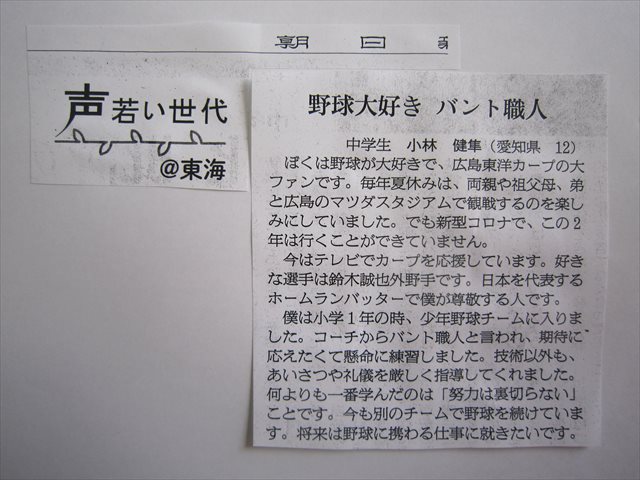 朝日
声 若い世代
@東海
野球大好き バント職人
中学生 小林 健隼（愛知県 12）
ぼくは野球が大好きで、広島東洋カープの大
ファンです。毎年夏休みは、両親や祖父母、弟
と広島のマツダスタジアムで観戦するのを楽し
みにしていました。でも新型コロナで、この2
年は行くことができていません。
今はテレビでカープを応援しています。好き
な選手は鈴木誠也外野手です。日本を代表する
ホームランバッターで僕が尊敬する人です。
僕は小学1年の時、少年野球チームに入りま
した。コーチからバント職人と言われ、期待に
応えたくて懸命に練習しました。技術以外も、
あいさつや礼儀を厳しく指導してくれました。
何よりも一番学んだのは「努力は裏切らない」
ことです。今も別のチームで野球を続けていま
す。将来は野球に携わる仕事に就きたいです。